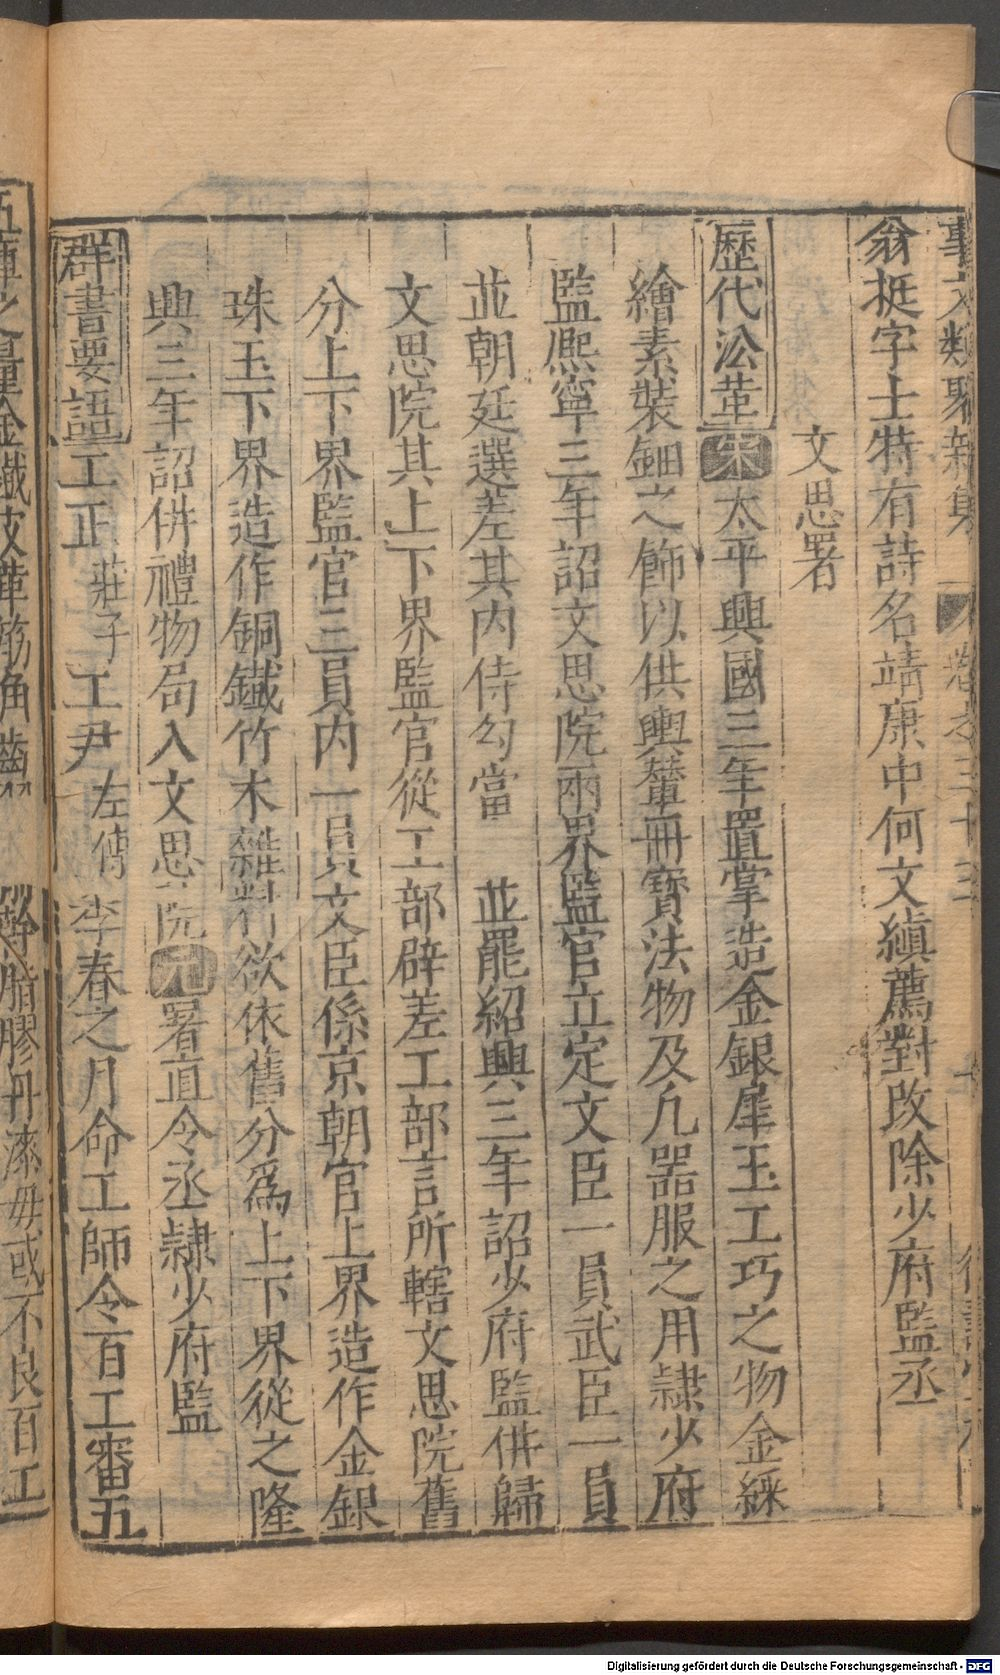 事文類聚新集 卷之三十三
翁挺字士特有詩名靖康中何文縝薦對改除少府監丞
文思署
歷代沿革宋太平興國三年置掌造金銀犀玉工巧之物金綵
繪素裝鈿之飾以供輿輦冊寶法物及凡器服之用隷少府
監熈寧三年詔文思院兩界監官立定文臣一員武臣一員
並朝廷選差其内侍勾當 並罷紹興三年詔少府監併歸
文思院其上下界監官從工部辟差工部言所轄文思院舊
分上下界監官三員内一員文臣係京朝官上界造作金銀
珠玉下界造作銅鐵竹木雜料欲依舊分爲上下界從之隆
興三年詔併禮物局入文思院元署直令丞隷少府監
群書要語工正莊子工尹左傳季春之月命工師令百工審五
五庫之量金鐵皮革筋角齒 幹脂膠丹漆毋或不良百工
Digitalisierung gefördert durch die Deutsche Forschungsgemeinschaft - DFG